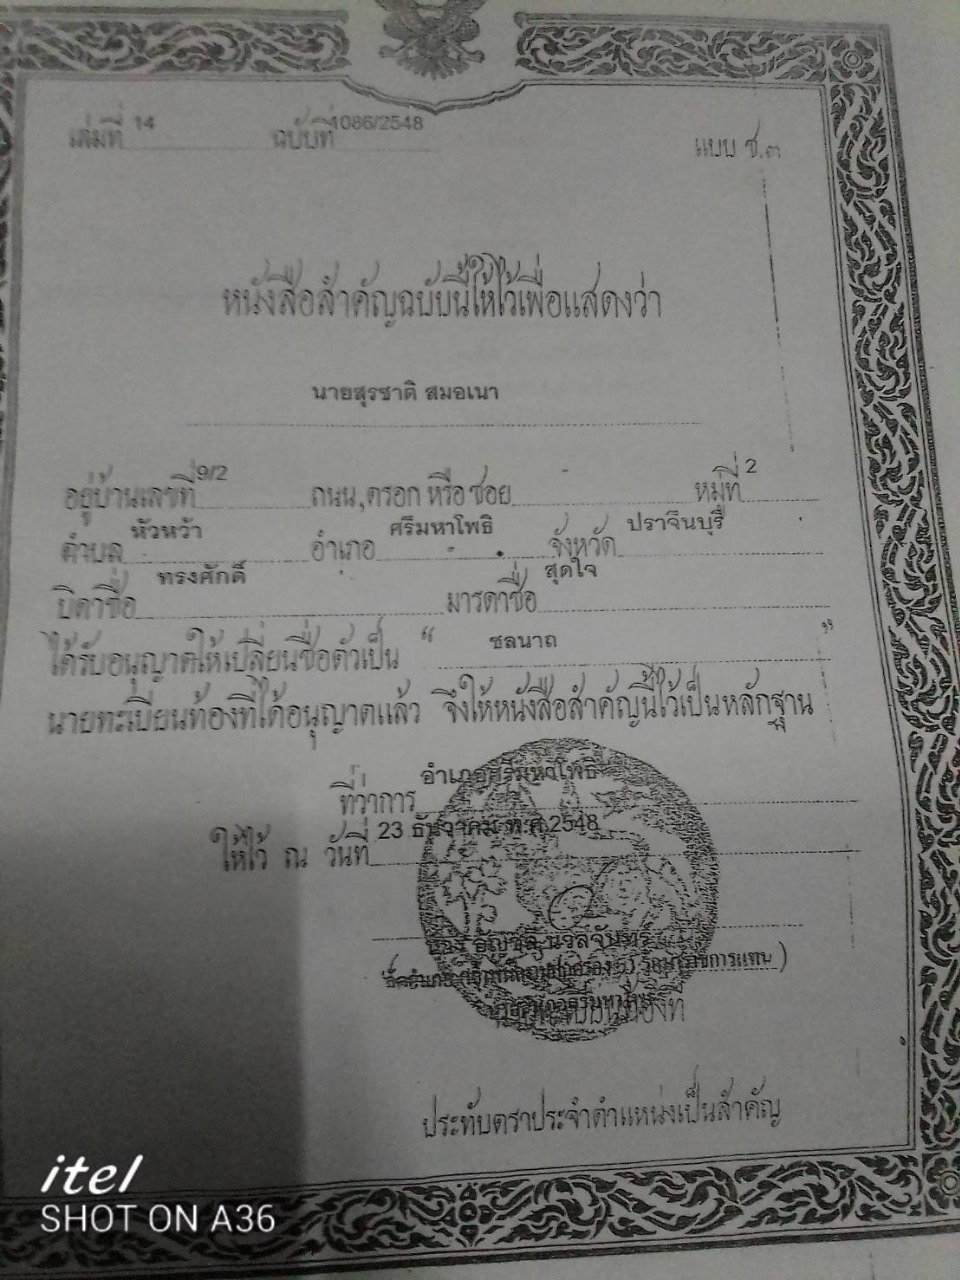 เล่มที่ 14 ฉบับที่ 1086/2548
แบบ ช.๓
หนังสือสำคัญฉบับนี้ให้ไว้เพื่อแสดงว่า
นายสุรชาติ สมอเนา
อยู่บ้านเลขที่ 9/2 ถนน,ตรอก หรือ ซอย หมู่ที่ 2
ตำบล หัวหว้า อำเภอ ศรีมหาโพธิ จังหวัด ปราจีนบุรี
บิดาชื่อ ทรงศักดิ์ มารดาชื่อ สุดใจ
ได้รับอนุญาตให้เปลี่ยนชื่อตัวเป็น “ ชลนาถ ”
นายทะเบียนท้องที่ได้อนุญาตแล้ว จึงให้หนังสือสำคัญนี้ไว้เป็นหลักฐาน
ที่ว่าการ อำเภอศรีมหาโพธิ
ให้ไว้ ณ วันที่ 23 ธันวาคม พ.ศ.2548
นวลจันทร์
ราชการแทน )
นายทะเบียนท้องที่
ประทับตราประจำตำแหน่งเป็นสำคัญ
itel
SHOT ON A36